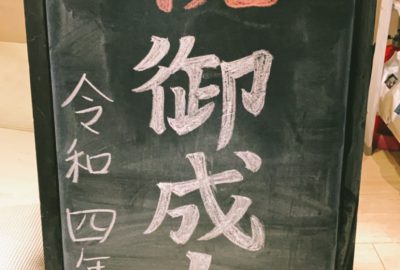 御成
令和四年